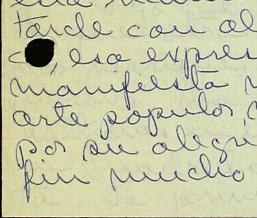 tarde con al
esa expres
manifiesta
arte popular,
por su alegr
fin mucho